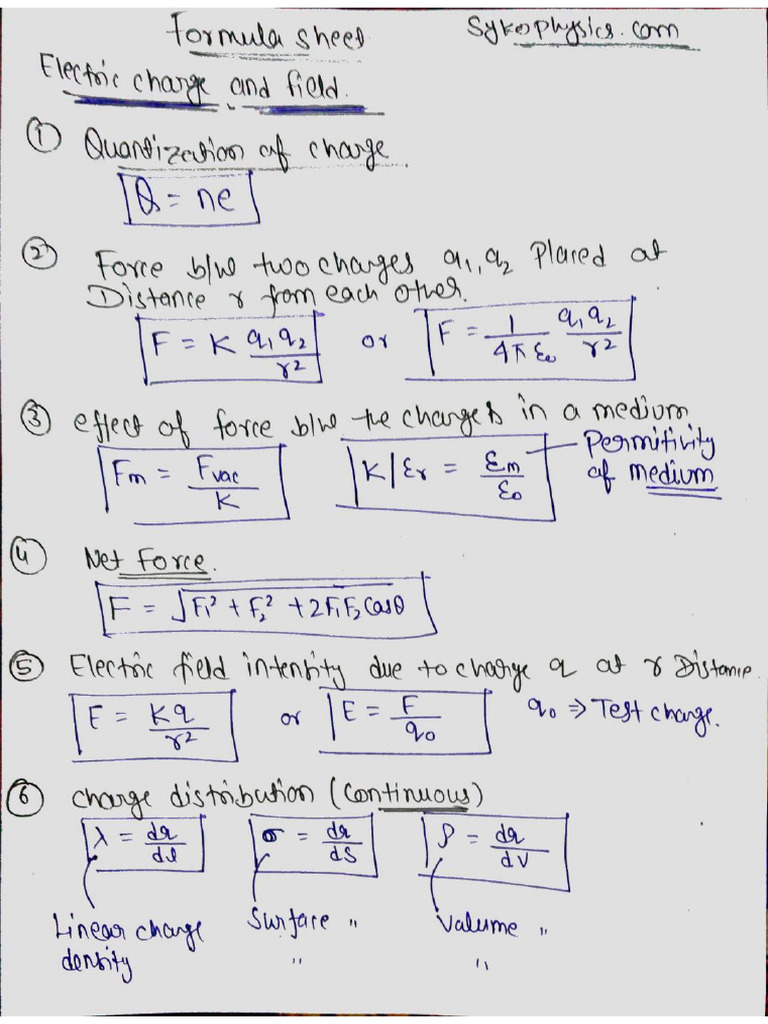 Formula sheet
Sykophysics.com
Electric charge and field.
① Quantization of charge.
Q = ne
② Force b/w two charges q₁, q₂ Placed at
Distance r from each other.
F = K q₁q₂/r² or F = 1/4πε₀ q₁q₂/r²
③ effect of force b/w the charges in a medium
Fm = Fvac/K K/εr = εm/ε₀ Permitivity
of medium
④ Net Force.
F = √F₁² + F₂² + 2F₁F₂ Cosθ
⑤ Electric field intensity due to charge q at r Distance.
E = Kq/r² or E = F/q₀ q₀ ⇒ Test charge.
⑥ charge distribution (Continuous)
λ = dq/dl σ = dq/dS ρ = dq/dV
Linear charge Surface " Volume "
density " "